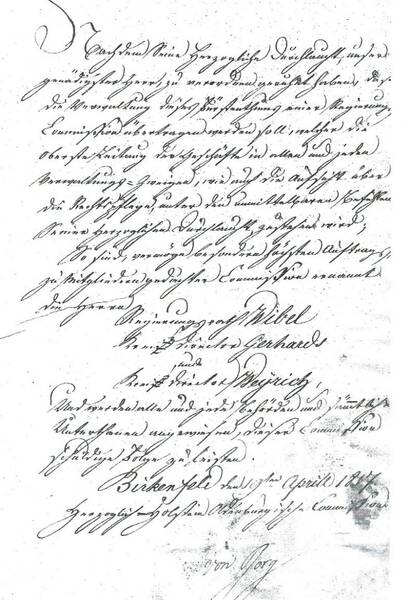 Nachdem Seine Herzogliche Durchlaucht, unser
gnädigster Herr, zu verordnen geruhet haben, daß
die Verwaltung dieses Fürstenthums einer Regierungs
Commission übertragen werden soll, welcher die
oberste Leitung der Geschäfte in allen und jeden
Verwaltungs-Zweigen, wie auch die Aufsicht über
die Rechtspflege, unter dem unmittelbaren Befehlen
Seiner Herzoglichen Durchlaucht, zustehen wird;
So sind, vermöge besondern höchsten Auftrags,
zu Mitgliedern gedachter Commission ernannt
die Herren
Regierungsrath Wibel
director Gerhards
und
director Weyrich,
Und werden alle und jede Behörden und sämmtliche
Unterthanen angewiesen, dieser Commission
schuldige Folge zu leisten.
Birkenfeld den April 1817
Herzoglich Holstein Oldenburgische Commission
von